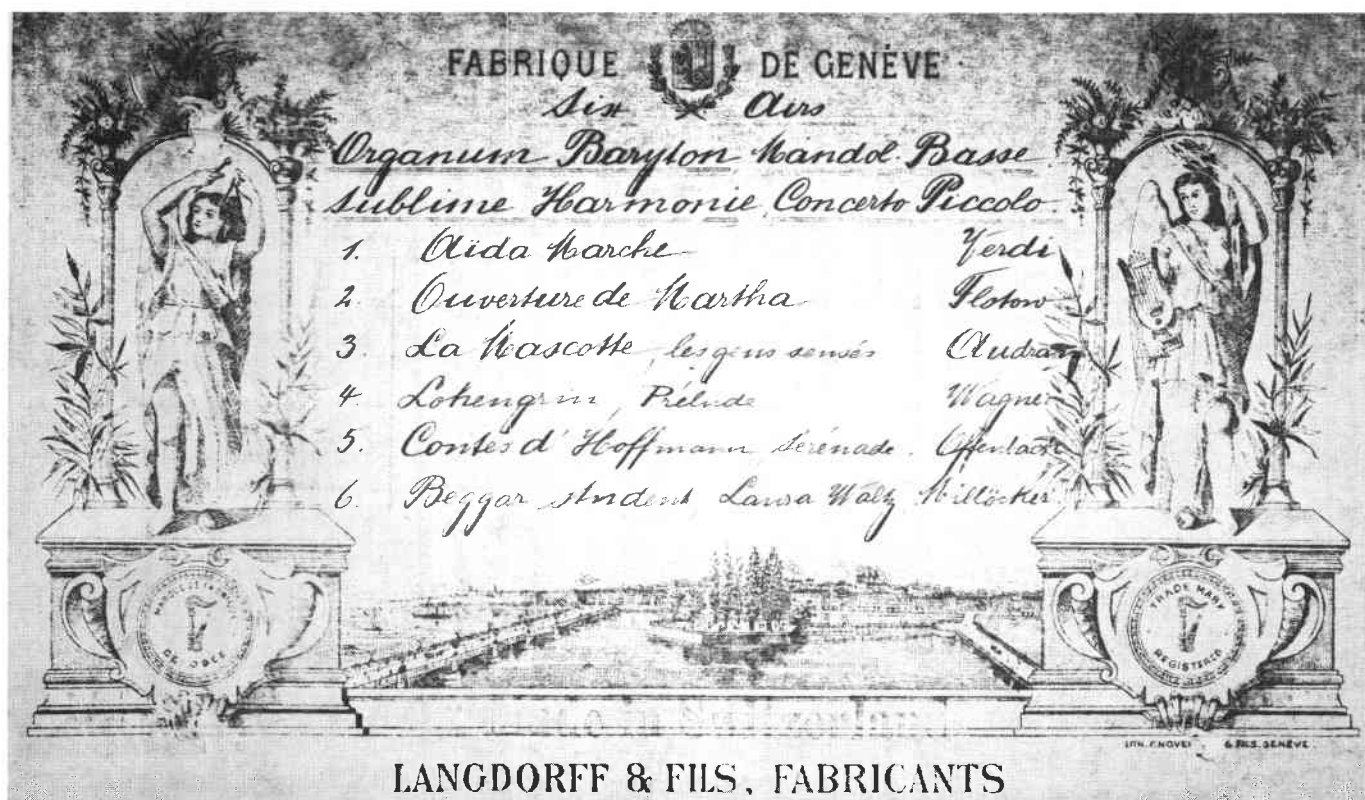 FABRIQUE DE GENÈVE
Six Airs
Organum Baryton Mandol. Basse
Sublime Harmonie, Concerto Piccolo.
1. Aïda Marche Verdi
2. Ouverture de Martha Flotow
3. La Mascotte, les gens sensés Audran
4. Lohengrin, Prélude Wagner
5. Contes d'Hoffmann Sérénade. Offenbach
6. Beggar student Laura Waltz Millöcker
DE
TRADE MARK
REGISTERED
& FILS. GENÈVE.
LANGDORFF & FILS, FABRICANTS